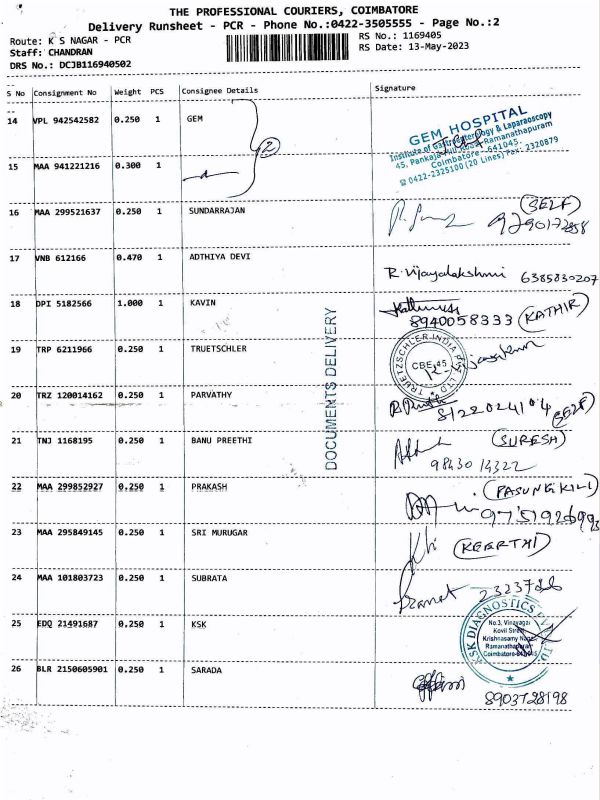 THE PROFESSIONAL COURIERS, COIMBATORE
Delivery Runsheet - PCR - Phone No.:0422-3505555 - Page No.:2
Route: K S NAGAR - PCR
RS No.: 1169405
Staff: CHANDRAN
RS Date: 13-May-2023
DRS No.: DCJB116940502
S No Consignment No Weight PCS Consignee Details Signature
14 VPL 942542582 0.250 1 GEM
GEM HOSPITAL
Institute of Gastroenterology & Laparaoscopy
45, Pankaja Mill Road, Ramanathapuram
Coimbatore - 641045.
0422-2325100 (20 Lines) Fax: 2320879
2
15 MAA 941221216 0.300 1
16 MAA 299521637 0.250 1 SUNDARRAJAN
(SELF)
9790172858
17 VNB 612166 0.470 1 ADTHIYA DEVI
R. Vijayalakshmi 6385830207
18 DPI 5182566 1.000 1 KAVIN
8940058333 (KATHIR)
DOCUMENTS DELIVERY
19 TRP 6211966 0.250 1 TRUETSCHLER
TRUETZSCHLER INDIA PVT. LTD
CBE-45
20 TRZ 120014162 0.250 1 PARVATHY
8122024104
SELF
21 TNJ 1168195 0.250 1 BANU PREETHI
(SURESH)
98430 14322
22 MAA 299852927 0.250 1 PRAKASH
(PASUNGKILI)
9751926993
23 MAA 295849145 0.250 1 SRI MURUGAR
(KEERTHI)
24 MAA 101803723 0.250 1 SUBRATA
25 EDQ 21491687 0.250 1 KSK
KSK DIAGNOSTICS PVT LTD
No.3, Vinayagar
Kovil Street
Krishnasamy Nagar
Ramanathapuram
Coimbatore-641045
26 BLR 2150605901 0.250 1 SARADA
8903728198